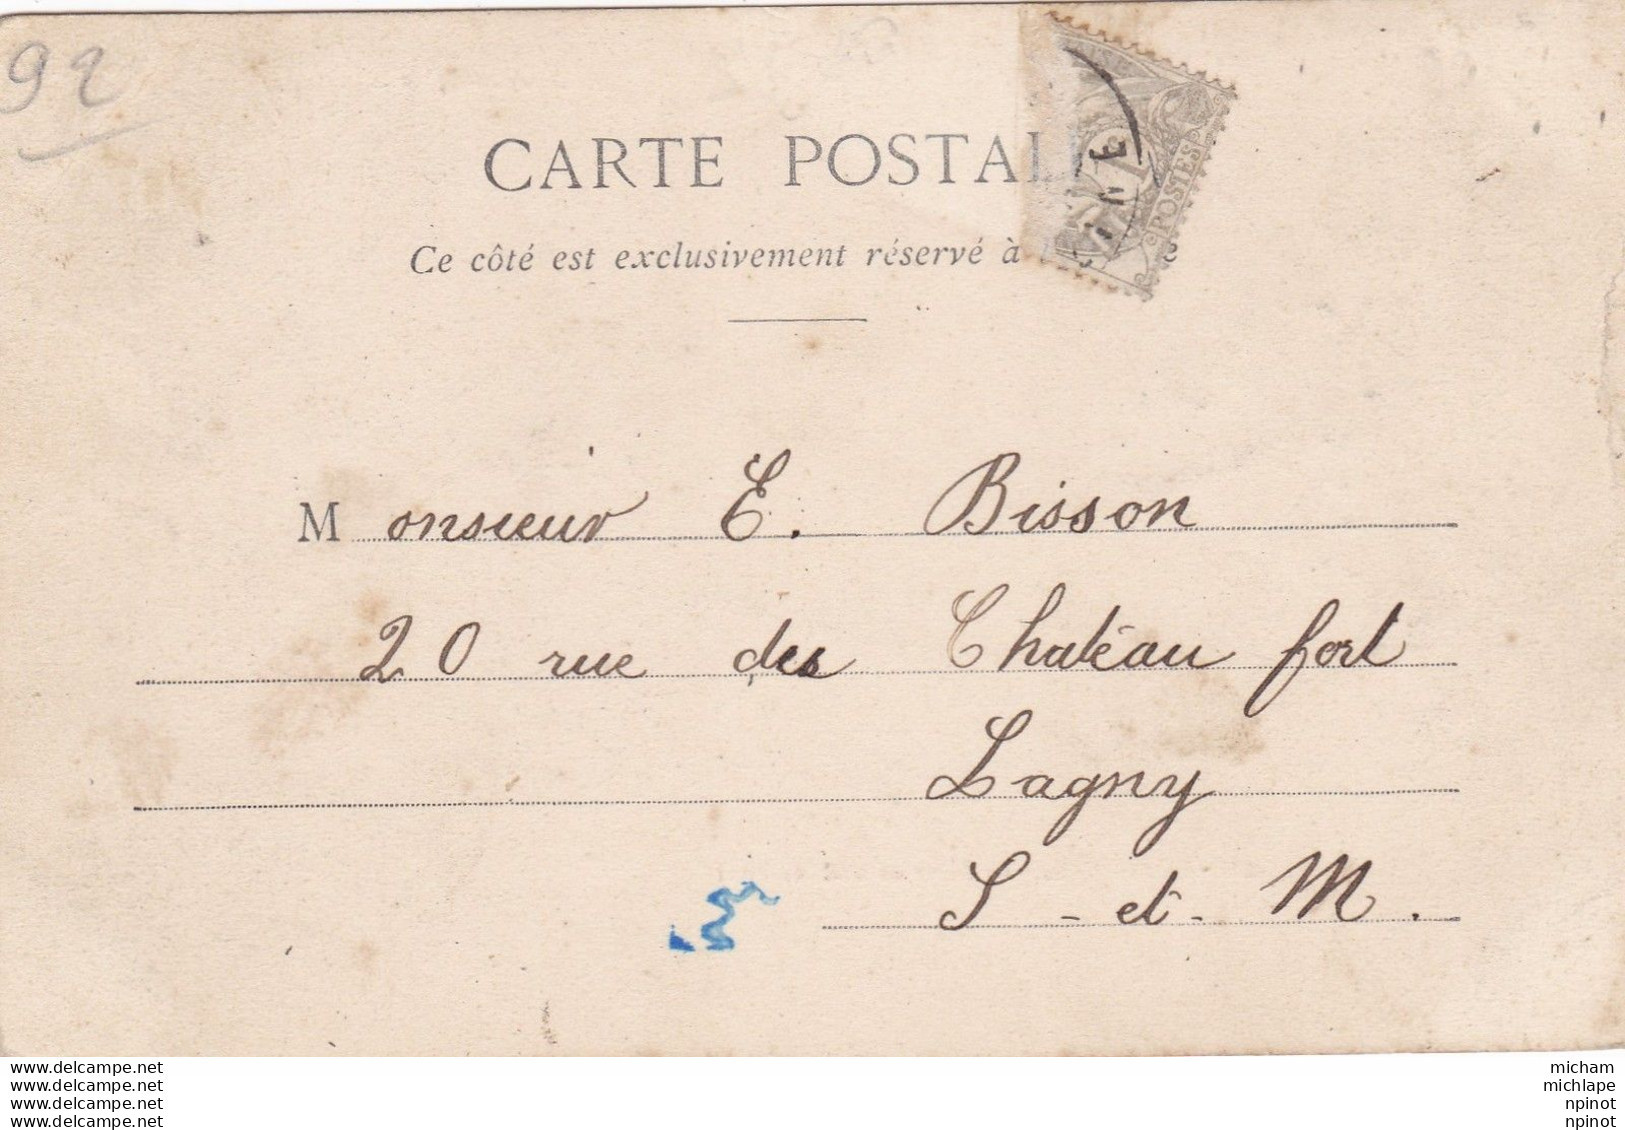 92
CARTE POSTAL
POSTES
Ce côté est exclusivement réservé à
Monsieur E. Bisson
20 rue des Chateau fort
Lagny
S-et-M.
www.delcampe.net
www.delcampe.net
www.delcampe.net
www.delcampe.net
micham
michlape
npinot
npinot